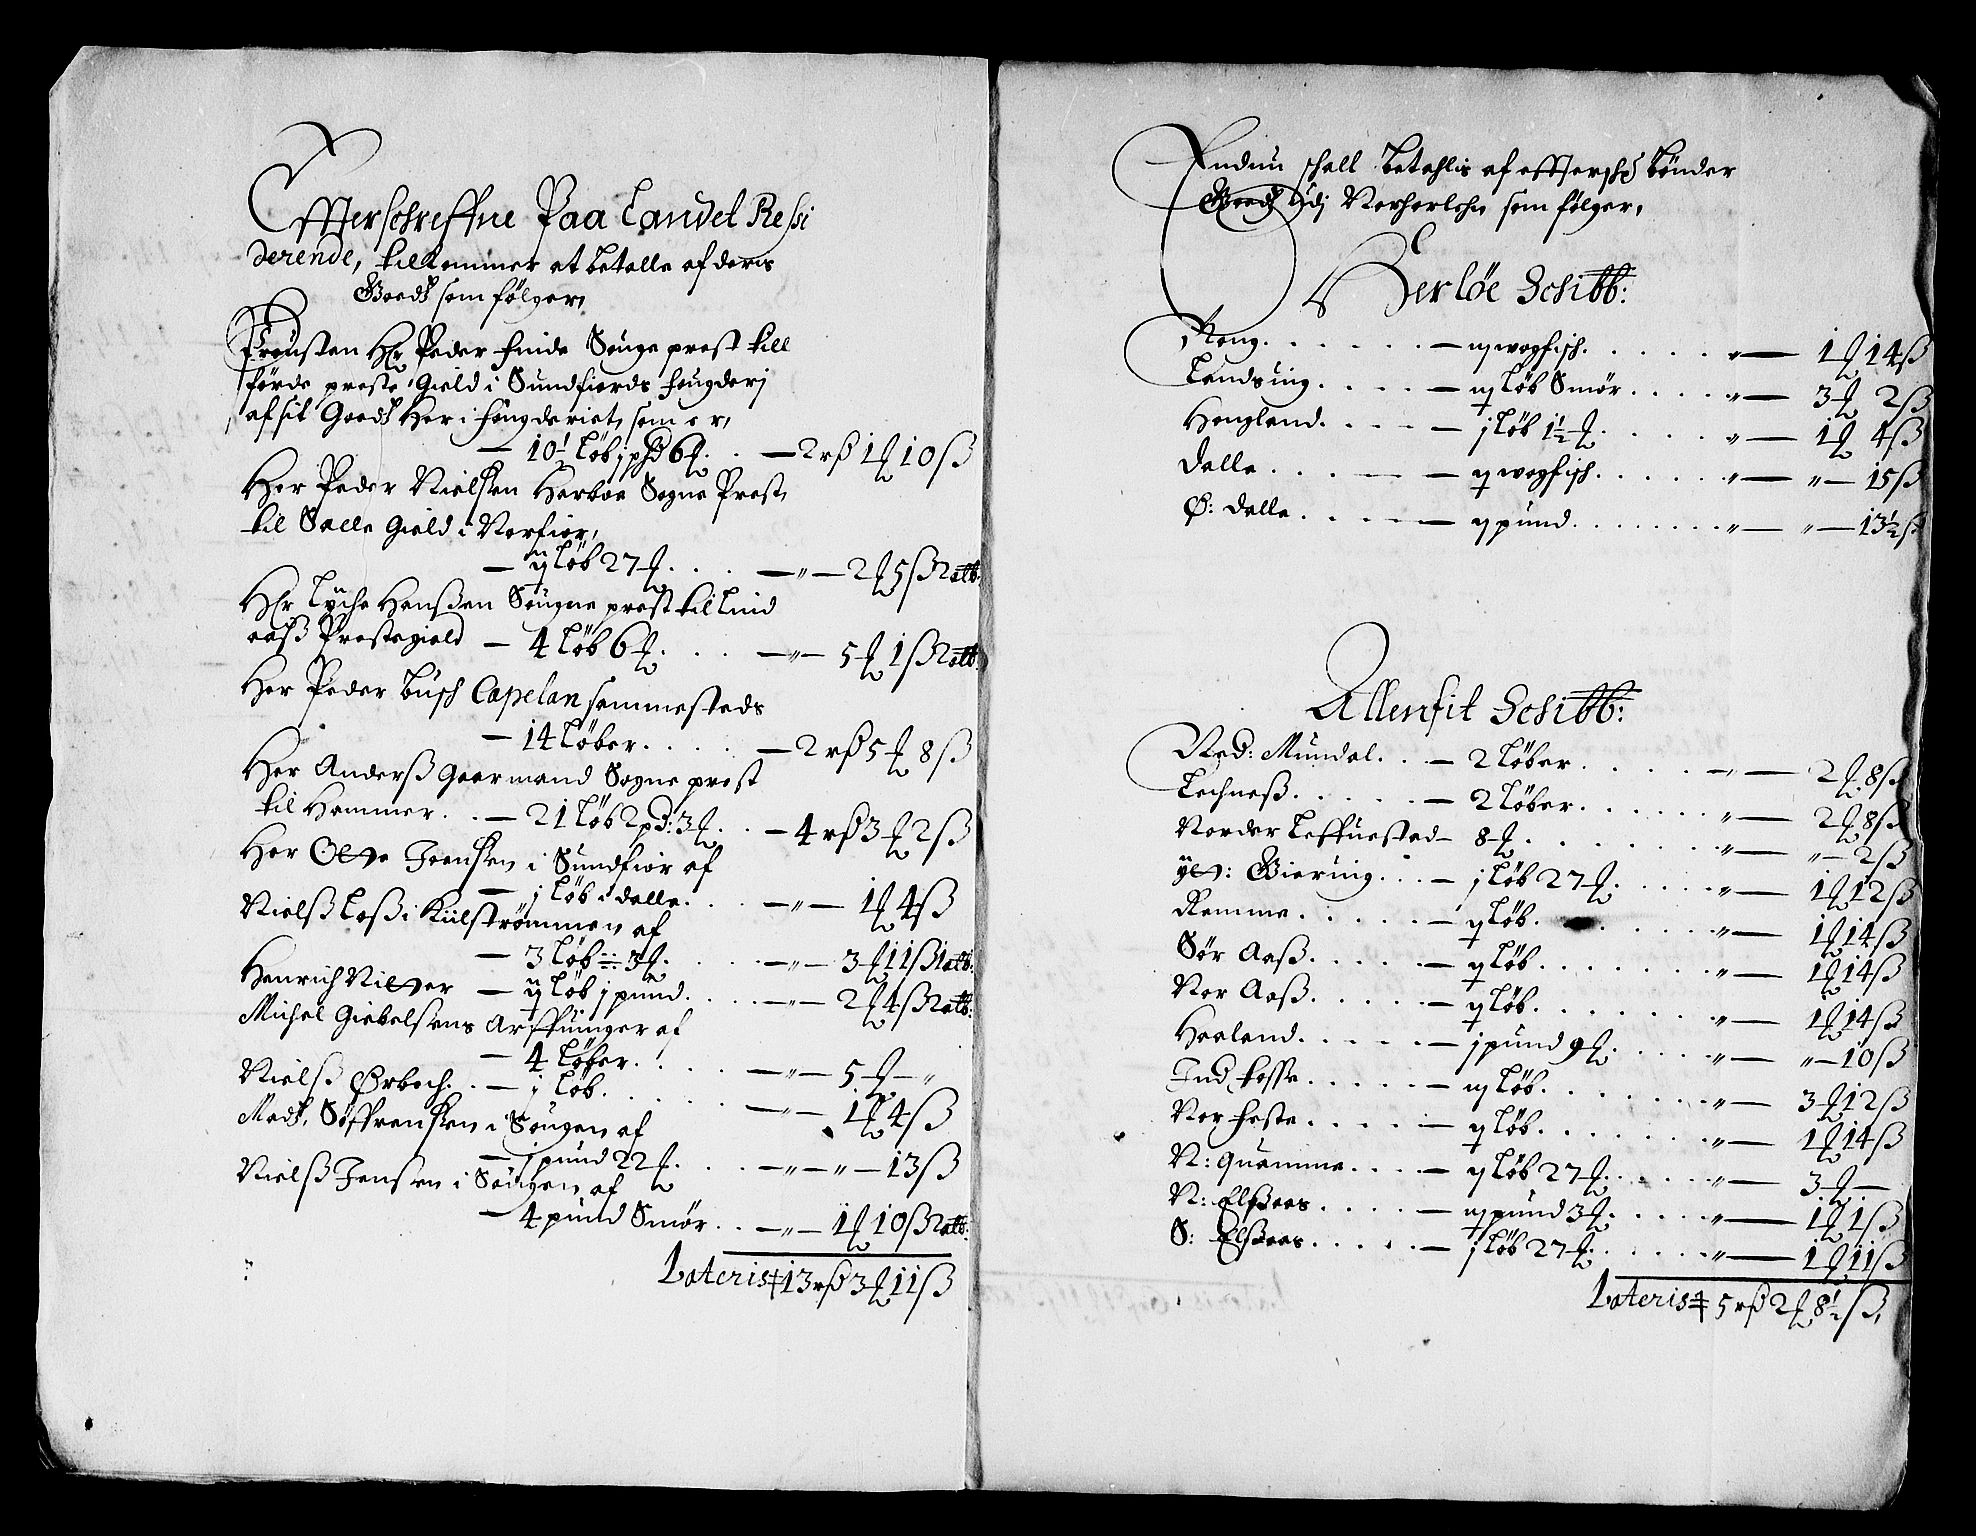 Effterschreffne Paa Landet Resi
derende, tilkommer at betalle af deris
Goeds som følger,
Prousten Hr Peder finde Sougne prest till
førde preste Gield i Sundfiords fougderj
af sit Goeds Her i fougderiet, som er,
— 10½ Løb j pd 6 ℔. . . — 2 rß 1 ℔ 10 ß
Her Peder Nielssen Harboe Sogne Prest
til Sælle Gield i Norfior,
— ij Løb 27 ℔. . . . — „ — 2 ℔ 5 ß 2 alb:
Hr Lyche Hanssen Sougne prest til Lind
aaß Prestegield — 4 Løb 6 ℔. . . . — „ — 5 ℔ 1 ß 2 alb:
Her Peder Busch Capelan sammesteds
— 14 Løber. . . . — 2 rß 5 ℔ 8 ß
Her Anderß Gaarmand Sogne prest
til Hammer. . — 21 Løb 2 pd: 3 ℔. . — 4 rß 3 ℔ 2 ß
Her Olle Jenssen i Sundfior af
— j Løb i dalle. . . . — „ — 1 ℔ 4 ß
Nielß Loß i Kiilstrømmen af
— 3 Løb ÷ 3 ℔. . . . — „ — 3 ℔ 11 ß 1 alb:
Henrich Nilter — ij Løb j pund. . . . — „ — 2 ℔ 4 ß 2 alb:
Michel Giebelsens Arffuinger af
— 4 Løber. . . . — „ — 5 ℔ — „
Nielß Ørbech. . — j Løb. . . . . — „ — 1 ℔ 4 ß
Madß Søffrenssen i Sougen af
— j pund 22 ℔. . . . — „ — „ — 13 ß
Nielß Jensen i Sougen af
— 4 pund Smør. . . — „ — 1 ℔ 10 ß 2 alb:
Lateris ‡ 13 rß 3 ℔ 11 ß
Endnu schall betahlis af effterschr: bønder
Goeds udj Norhorlehn som følger,
Herløe Schibb:
Rong. . . . . . — iij wog fisch. . . . . „ — 1 ℔ 14 ß
Landsuig. . . . — iij Løb Smør. . . . . „ — 3 ℔ 2 ß
Hougland. . . . — j Løb 1½ ℔. . . . . „ — 1 ℔ 4 ß
Dalle. . . . . — ij wog fisch. . . . . „ — „ — 15 ß
Ø: dalle. . . . — ij pund. . . . . . . „ — „ — 13½ ß
Allenfit Schibb:
Ned: Mundal. . . — 2 Løber. . . . . — „ — 2 ℔ 8 ß
Lechneß. . . . . — 2 Løber. . . . . . „ — 2 ℔ 8 ß
Norder Leffuestad — 8 ℔. . . . . . . . „ — „ — 2 ß
ÿtt: Gieruig. . . — j Løb 27 ℔. . . . . „ — 1 ℔ 12 ß
Remme. . . . . — ij Løb. . . . „ — 1 ℔ 14 ß
Sør Aaß. . . . . — ij Løb. . . . . . . „ — 1 ℔ 14 ß
Nor Aaß. . . . . — ij Løb. . . . . . . „ — 1 ℔ 14 ß
Haaland. . . . . — j pund 9 ℔. . . . . „ — „ — 10 ß
Ind fosse. . . . . — iij Løb. . . . . . . „ — 3 ℔ 12 ß
Nor feste. . . . . — ij Løb. . . . . . . „ — 1 ℔ 14 ß
N: Quamme. . . . — ij Løb 27 ℔. . . . . „ — 3 ℔ —
N: Elßaas. . . . . — iij pund 3 ℔. . . . . „ — 1 ℔ 1 ß
S: Elßaas. . . . . — j Løb 27 ℔. . . . . „ — 1 ℔ 11 ß
Lateris ‡ 5 rß 2 ℔ 8½ ß,